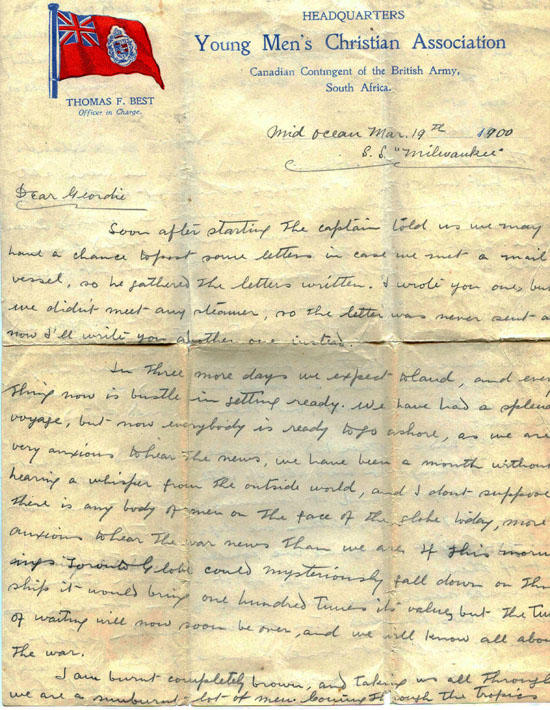 HEADQUARTERS
Young Men's Christian Association
Canadian Contingent of the British Army,
South Africa.
THOMAS F. BEST
Officer in Charge.
Mid Ocean Mar. 19th 1900
S.S. "Milwaukee"
Dear Geordie
Soon after starting the captain told us we may
have a chance to post some letters in case we met a mail
vessel, so he gathered the letters written. I wrote you one but
we didn't meet any steamer, so the letter was never sent a
now I'll write you another one instead.
In three more days we expect to land, and every
thing now is bustle in getting ready. We have had a splen
voyage, but now everybody is ready to go ashore, as we are
very anxious to hear the news, we have been a month without
hearing a whisper from the outside world, and I dont suppose
there is any body of men on the face of the globe today, more
anxious to hear the war news than we are. If this morn
ings Toronto Globe could mysteriously fall down on this
ship it would bring one hundred times its value, but the time
of waiting will now soon be over, and we will know all abou
the war.
I am burnt completely brown, and taking us all through
we are a sunburnt lot of men. Coming through the tropics